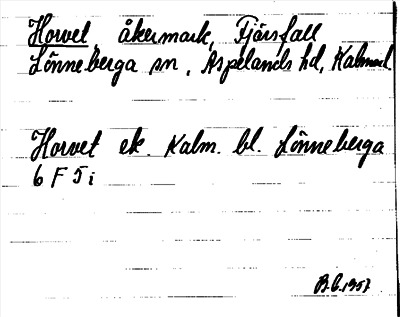 Horvet, åkermark, Fjärsfall
Lönneberga sn, Aspelands hd, Kalmar l.
Horvet ek. Kalm. bl. Lönneberga
6 F 5 i
B.G. 1957